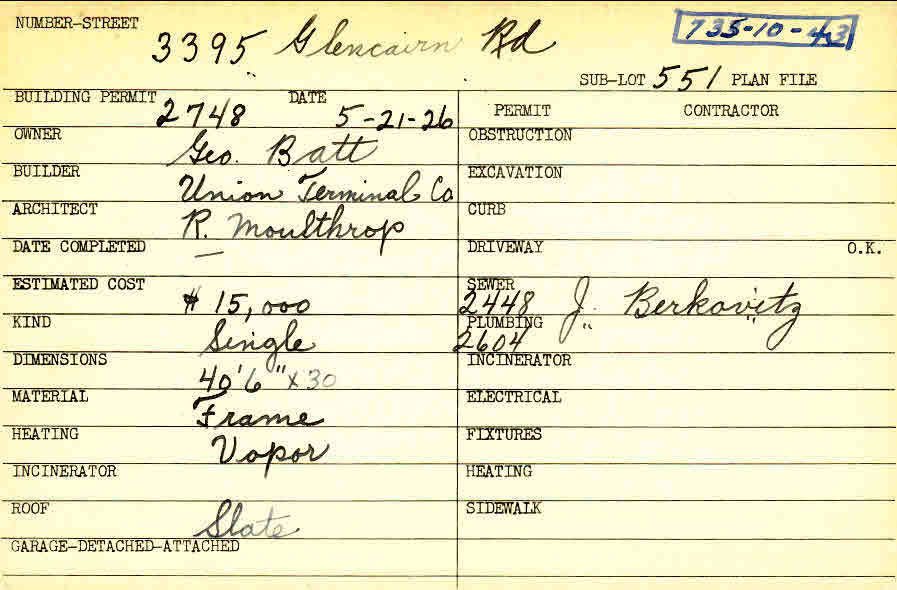 NUMBER-STREET 3395 Glencairn Rd 735-10-43
SUB-LOT 551 PLAN FILE
BUILDING PERMIT 2748 DATE 5-21-26
PERMIT CONTRACTOR
OWNER Geo. Batt
OBSTRUCTION
BUILDER Union Terminal Co
EXCAVATION
ARCHITECT R. Moulthrop
CURB
DATE COMPLETED —
DRIVEWAY O.K.
ESTIMATED COST $15,000
SEWER 2448 J. Berkovitz
KIND Single
PLUMBING 2604 " "
DIMENSIONS 40'6" x 30
INCINERATOR
MATERIAL Frame
ELECTRICAL
HEATING Vapor
FIXTURES
INCINERATOR
HEATING
ROOF Slate
SIDEWALK
GARAGE-DETACHED-ATTACHED